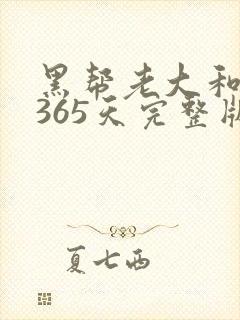 黑帮老大和
365天完整版
夏七西